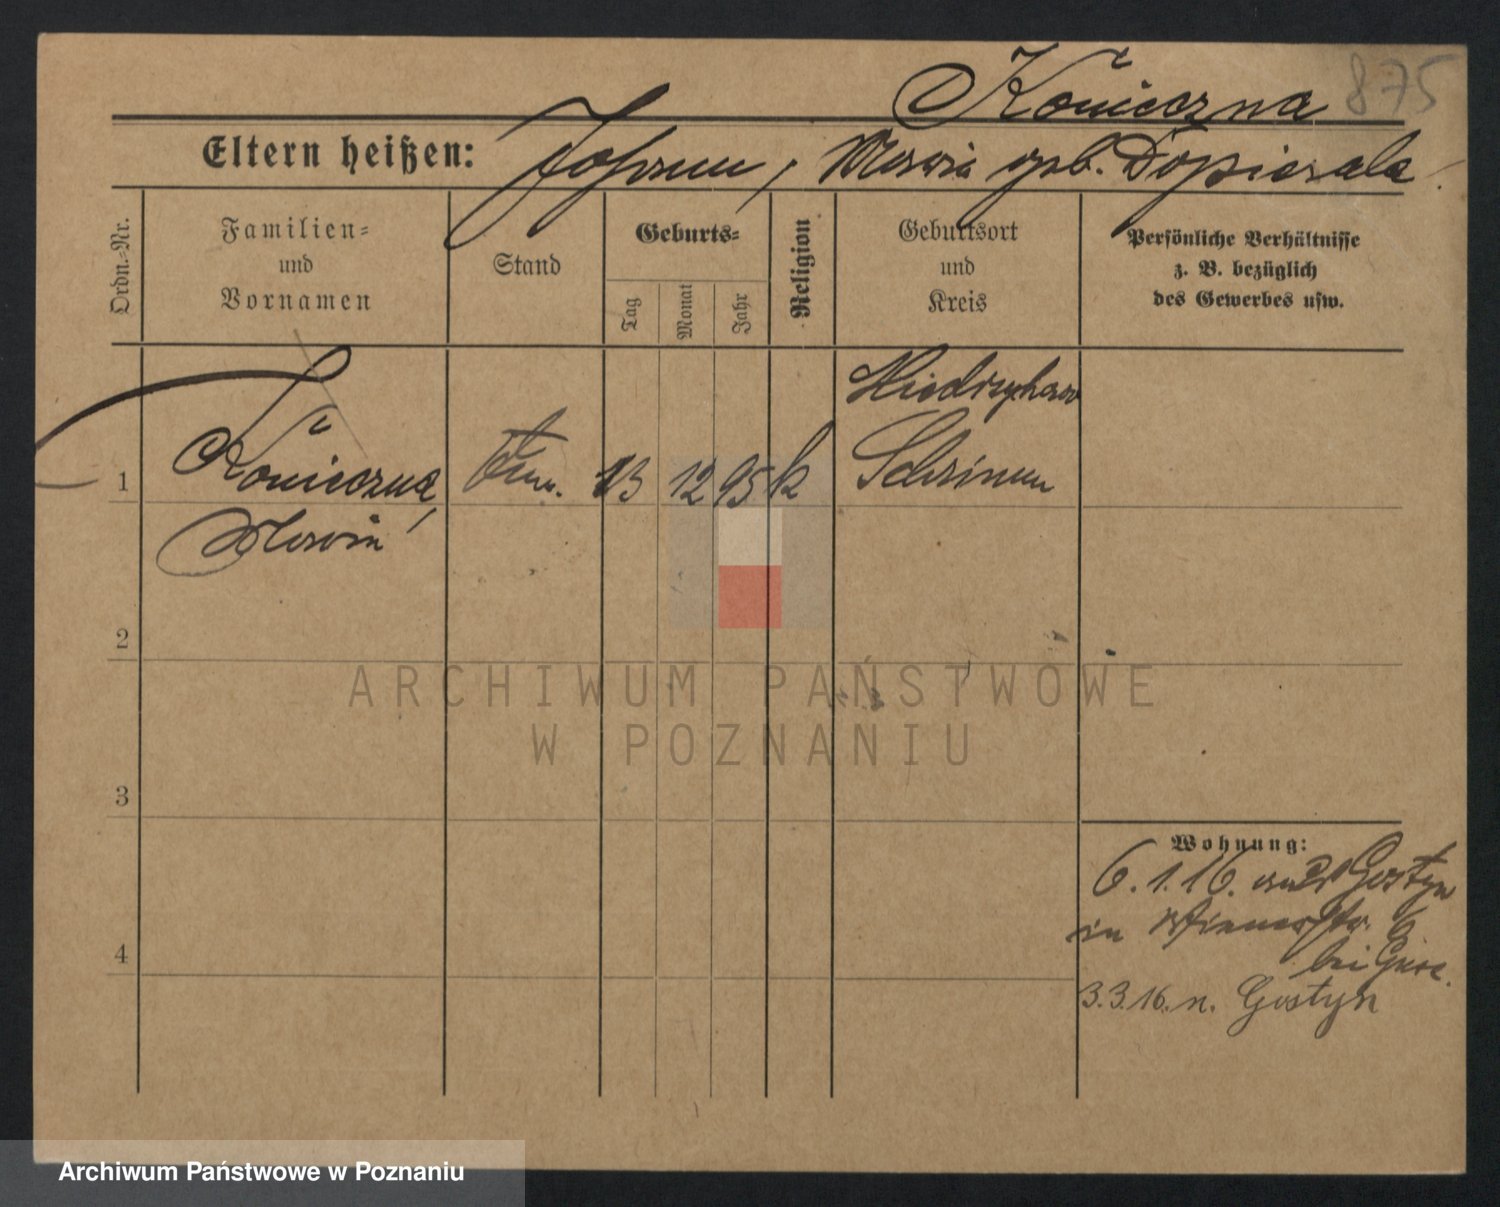 Konieczna 875
Eltern heißen: Johann, Maria geb. Dopierala
Ordn.-Nr.
Familien-
und
Vornamen
Stand
Geburts-
Tag
Monat
Jahr
Religion
Geburtsort
und
Kreis
Persönliche Verhältnisse
z. B. bezüglich
des Gewerbes usw.
1 Konieczna 13 12 95 k Schrimm
Maria
2
3
4
Wohnung:
6.1.16. aus Gostyn
in 6
bei
3.3.16. n. Gostyn
ARCHIWUM PAŃSTWOWE
W POZNANIU
Archiwum Państwowe w Poznaniu